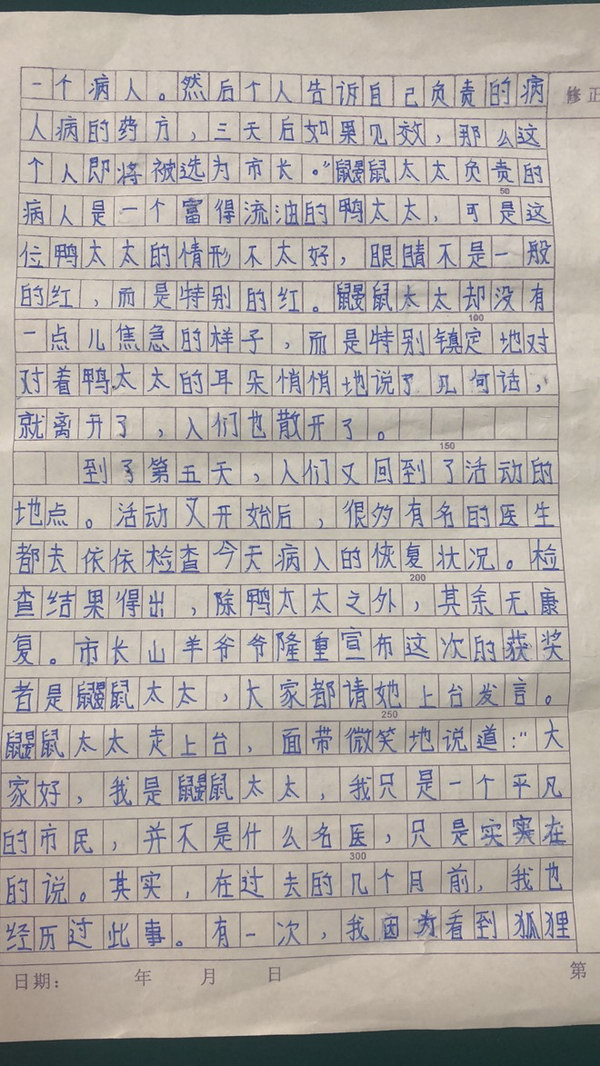 一个病人。然后个人告诉自己负责的病
修正
人病的药方，三天后如果见效，那么这
个人即将被选为市长。”鼹鼠太太负责的
50
病人是一个富得流油的鸭太太，可是这
位鸭太太的情形不太好，眼睛不是一般
的红，而是特别的红。鼹鼠太太却没有
100
一点儿焦急的样子，而是特别镇定地对
对着鸭太太的耳朵悄悄地说了几何话，
就离开了，人们也散开了。
150
到了第五天，人们又回到了活动的
地点。活动又开始后，很多有名的医生
都去依依检查今天病人的恢复状况。检
200
查结果得出，除鸭太太之外，其余无康
复。市长山羊爷爷隆重宣布这次的获奖
者是鼹鼠太太，大家都请她上台发言。
250
鼹鼠太太走上台，面带微笑地说道：“大
家好，我是鼹鼠太太，我只是一个平凡
的市民，并不是什么名医，只是实实在
300
的说。其实，在过去的几个月前，我也
经历过此事。有一次，我因为看到狐狸
日期： 年 月 日 第